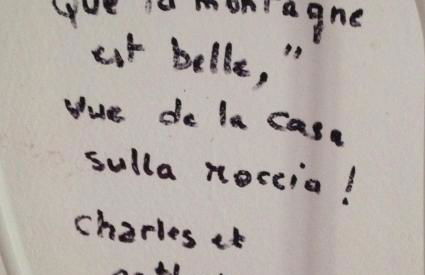 que la montagne
est belle,"
vue de la casa
sulla roccia !
charles et